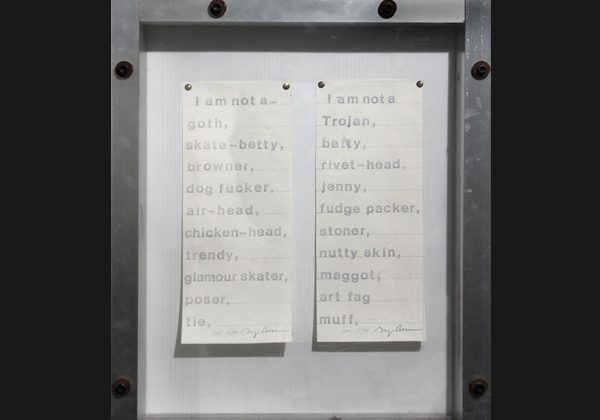 I am not a-
goth,
skate-betty,
browner,
dog fucker,
air-head,
chicken-head,
trendy,
glamour skater,
poser,
tie,
I am not a
Trojan,
betty,
rivet-head,
jenny,
fudge packer,
stoner,
nutty skin,
maggot,
art fag
muff,